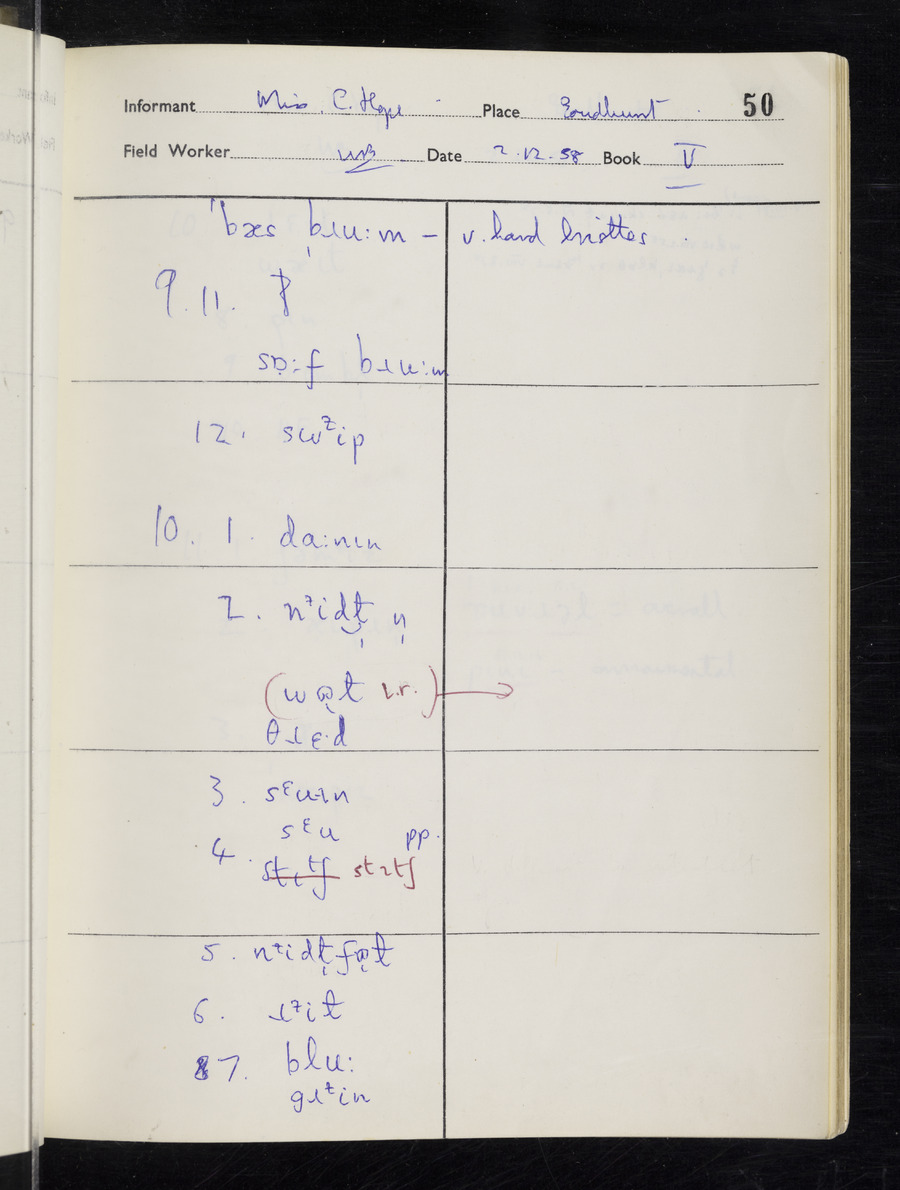 Informant Miss. C. Hope Place Goudhurst 50
Field Worker WB Date 2.12.58 Book V
ˈbæs ˌbɹuːm – v. hard bristles
9. 11.
sɒ̣ːf bɹuːm
12. swᶦip
10. 1. daːnɪn
2. nᶦidɫ̩ n̩
(wɒ̣ɫ i.r.) →
θɹɛ·d
3. sᵋu·ɪn
sᵋu
4. stɪtʃ stɪtʃ pp.
5. nᶦidɫ̩fɒ̣ɫ
6. ɹᶦit
7. bluː
gɹᶦin